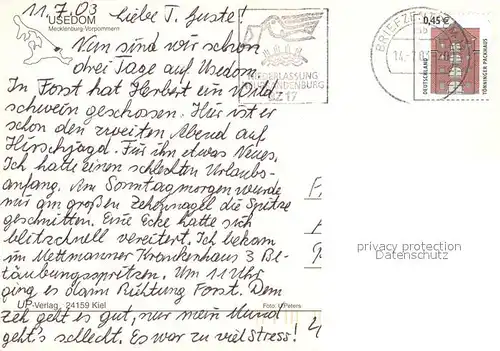 11.7.03 Liebe T. Guste!
USEDOM
Mecklenburg-Vorpommern
Nun sind wir schon
drei Tage auf Usedom.
In Forst hat Herbert ein Wild
schwein geschossen. Hier ist er
schon den zweiten Abend auf
Hirschjagd. Für ihn etwas Neues.
Ich hatte einen schlechten Urlaubs-
anfang. Am Sonntagmorgen wurde
mir am großen Zehennagel die Spitze
geschnitten. Eine Ecke hatte sich
blitzschnell vereitert. Ich bekam
im Mettmanner Krankenhaus 3 Be-
täubungsspritzen. Um 11 Uhr
ging es dann Richtung Forst. Dem
Zeh geht es gut, nur mein Mund
geht's schlecht. Es war zu viel Stress!
UP-Verlag, 24159 Kiel
Foto: Peters
NIEDERLASSUNG
BRANDENBURG
BZ 17
BRIEFZENTRUM
14.-7.03
0,45 €
DEUTSCHLAND
TÖNNINGER PACKHAUS
privacy protection
Datenschutz